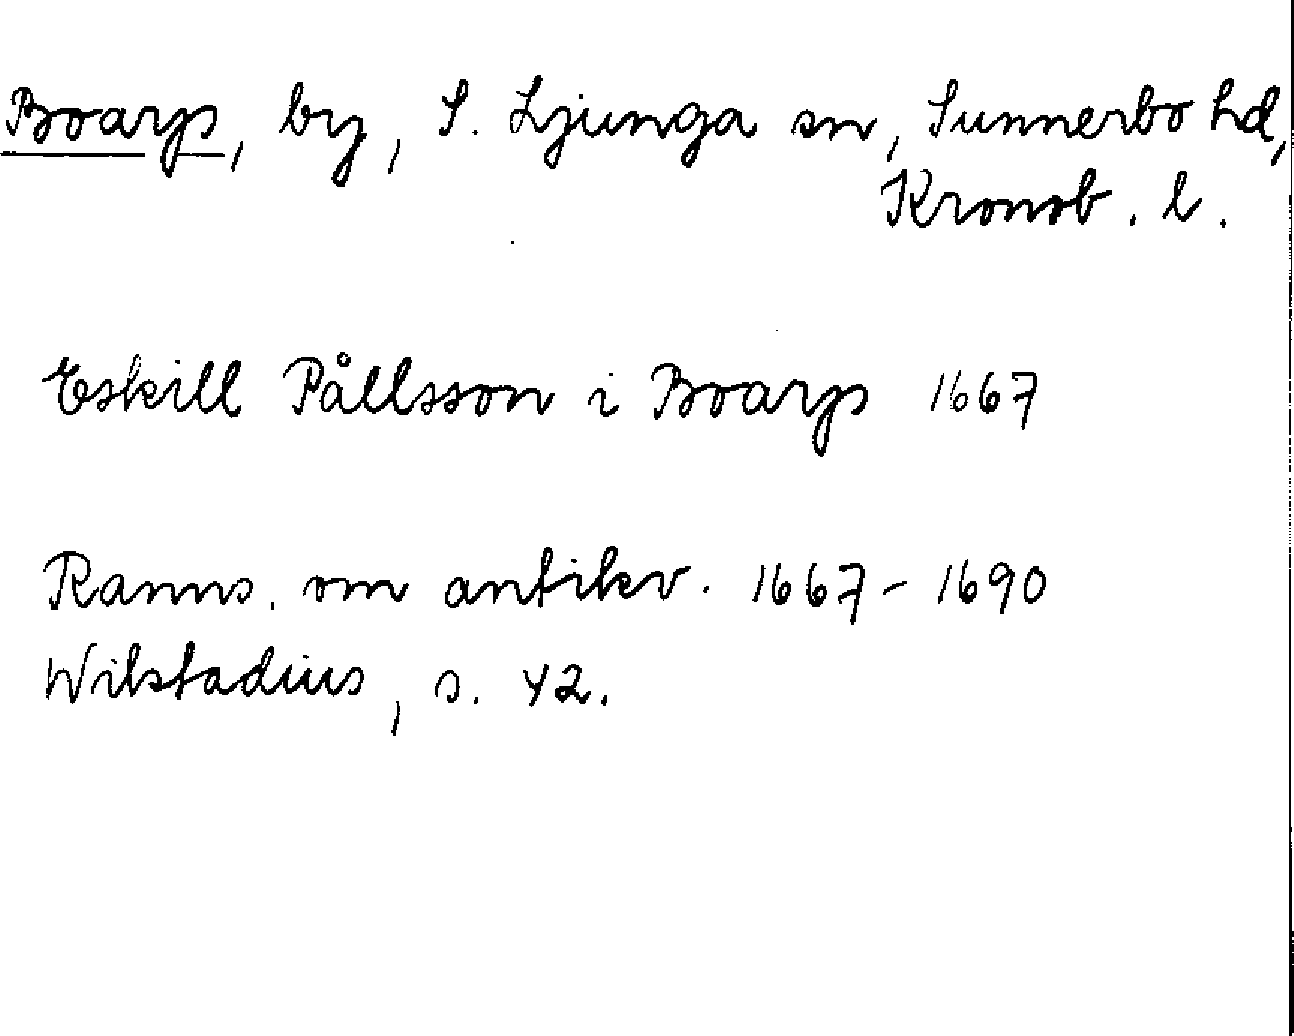 Boarp, by, S. Ljunga sn, Sunnerbo hd,
Kronob. l.
Eskill Pållsson i Boarp 1667
Ranns. om antikv. 1667-1690
Wilstadius, s. 42.